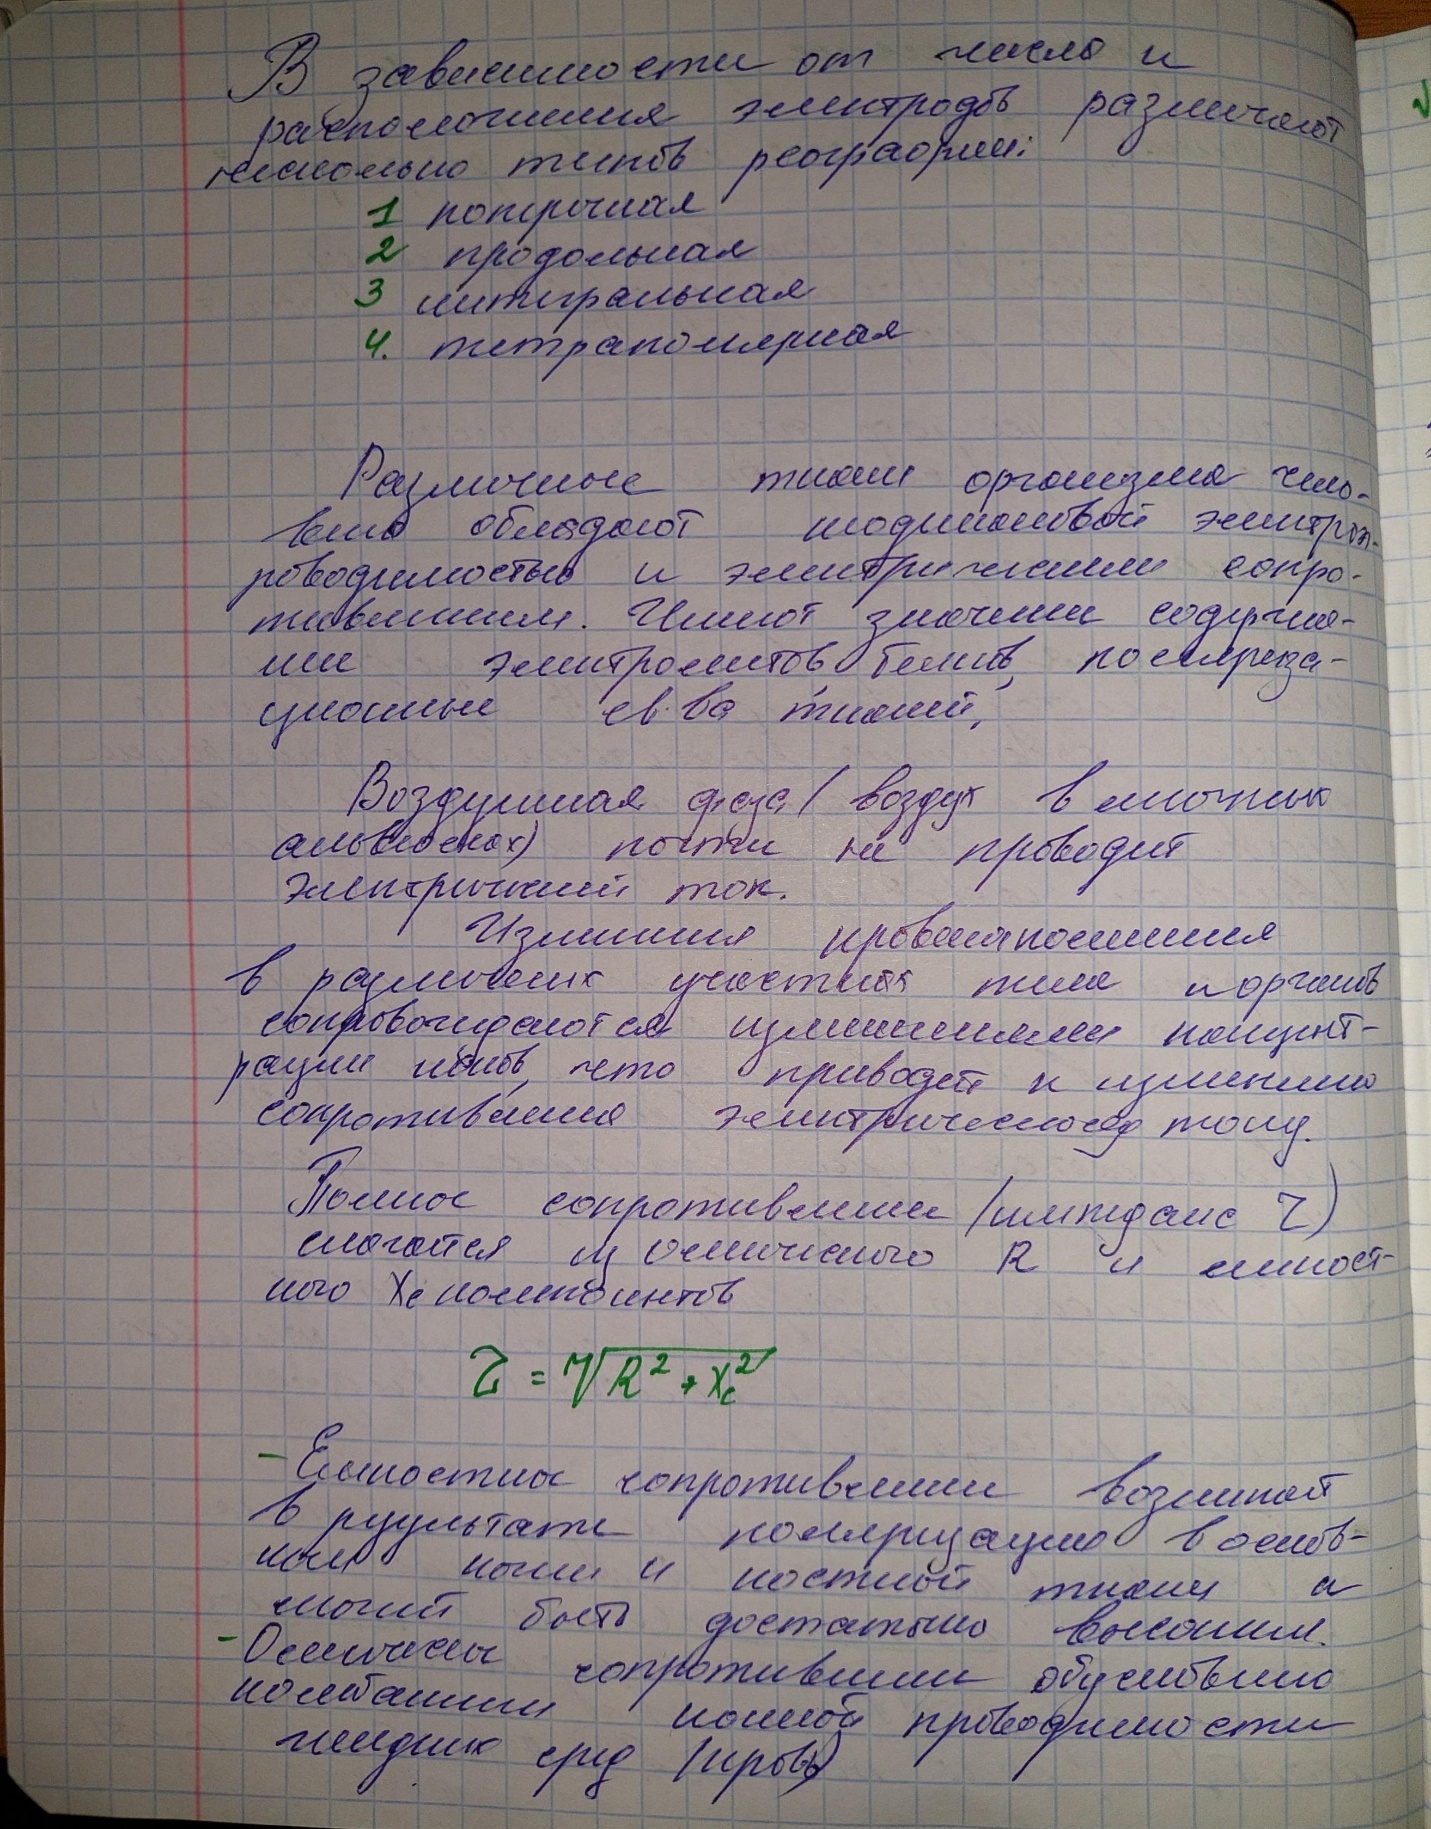 В зависимости от числа и
расположения электродов различают
несколько типов реографии:
1 поперечная
2 продольная
3 интегральная
4. тетраполярная
Различные ткани организма чело-
века обладают неодинаковой электроп-
роводимостью и электрическим сопро-
тивлением. Имеют значение содержа-
ние электролитов, белков, поляриза-
ционные св-ва тканей,
Воздушная фаза (воздух в легочных
альвеолах) почти не проводит
электрический ток.
Изменения кровенаполнения
в различных участках тела и органов
сопровождаются изменениями концент-
рации ионов, что приводит к изменению
сопротивления электрическому току.
Полное сопротивление (импеданс Z)
слагается из омического R и емкост-
ного Xc компонентов
Z = √R² + Xc²
- Емкостное сопротивление возникает
в результате поляризации в основ-
ном кожи и костной ткани и
может быть достаточно высоким.
- Омическое сопротивление обусловлено
колебаниями ионной проводимости
жидких сред (кровь)